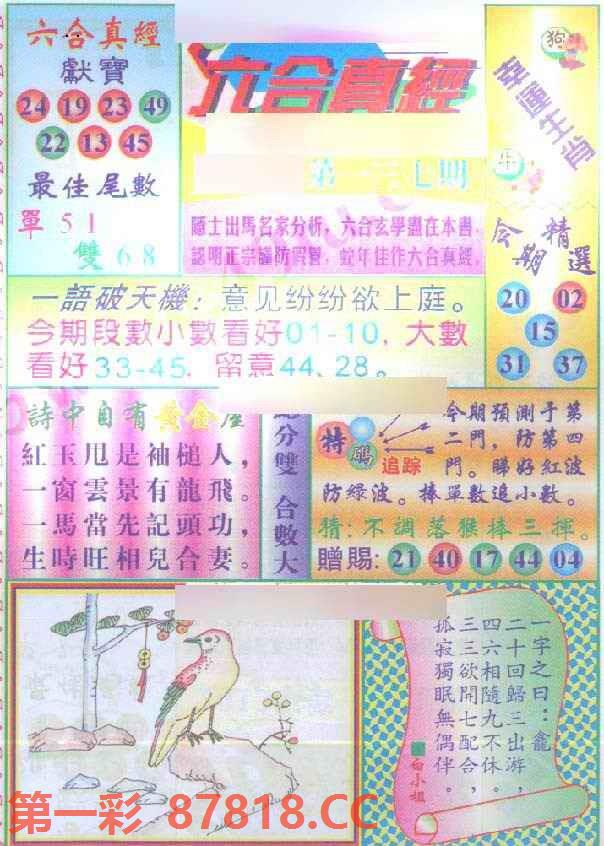 六合真經
獻寶
24 19 23 49
22 13 45
最佳尾數
單 51
雙 68
六合真經
七期
狗
幸運生肖
牛
隱士出馬名家分析，六合玄學盡在本書，
認明正宗謹防假冒，蛇年佳作六合真經，
今期精選
20 02
15
31 37
一語破天機：意见纷纷欲上庭。
今期段數小數看好01-10，大數
看好33-45，留意44、28。
詩中自有黃金屋
紅玉甩是袖槌人，
一窗雲景有龍飛。
一馬當先記頭功，
生時旺相兒合妻。
分雙 合數大
特碼
追踪
今期預測于第
二門，防第四
門。睇好紅波
防綠波。捧單數追小數。
猜：不調落猴捧三揮。
贈賜：21 40 17 44 04
一字之曰：龕
二十回歸三出游，
四六相隨九不休。
三三欲開七配合，
孤寂獨眠無偶伴。
白小姐
第一彩 87818.CC